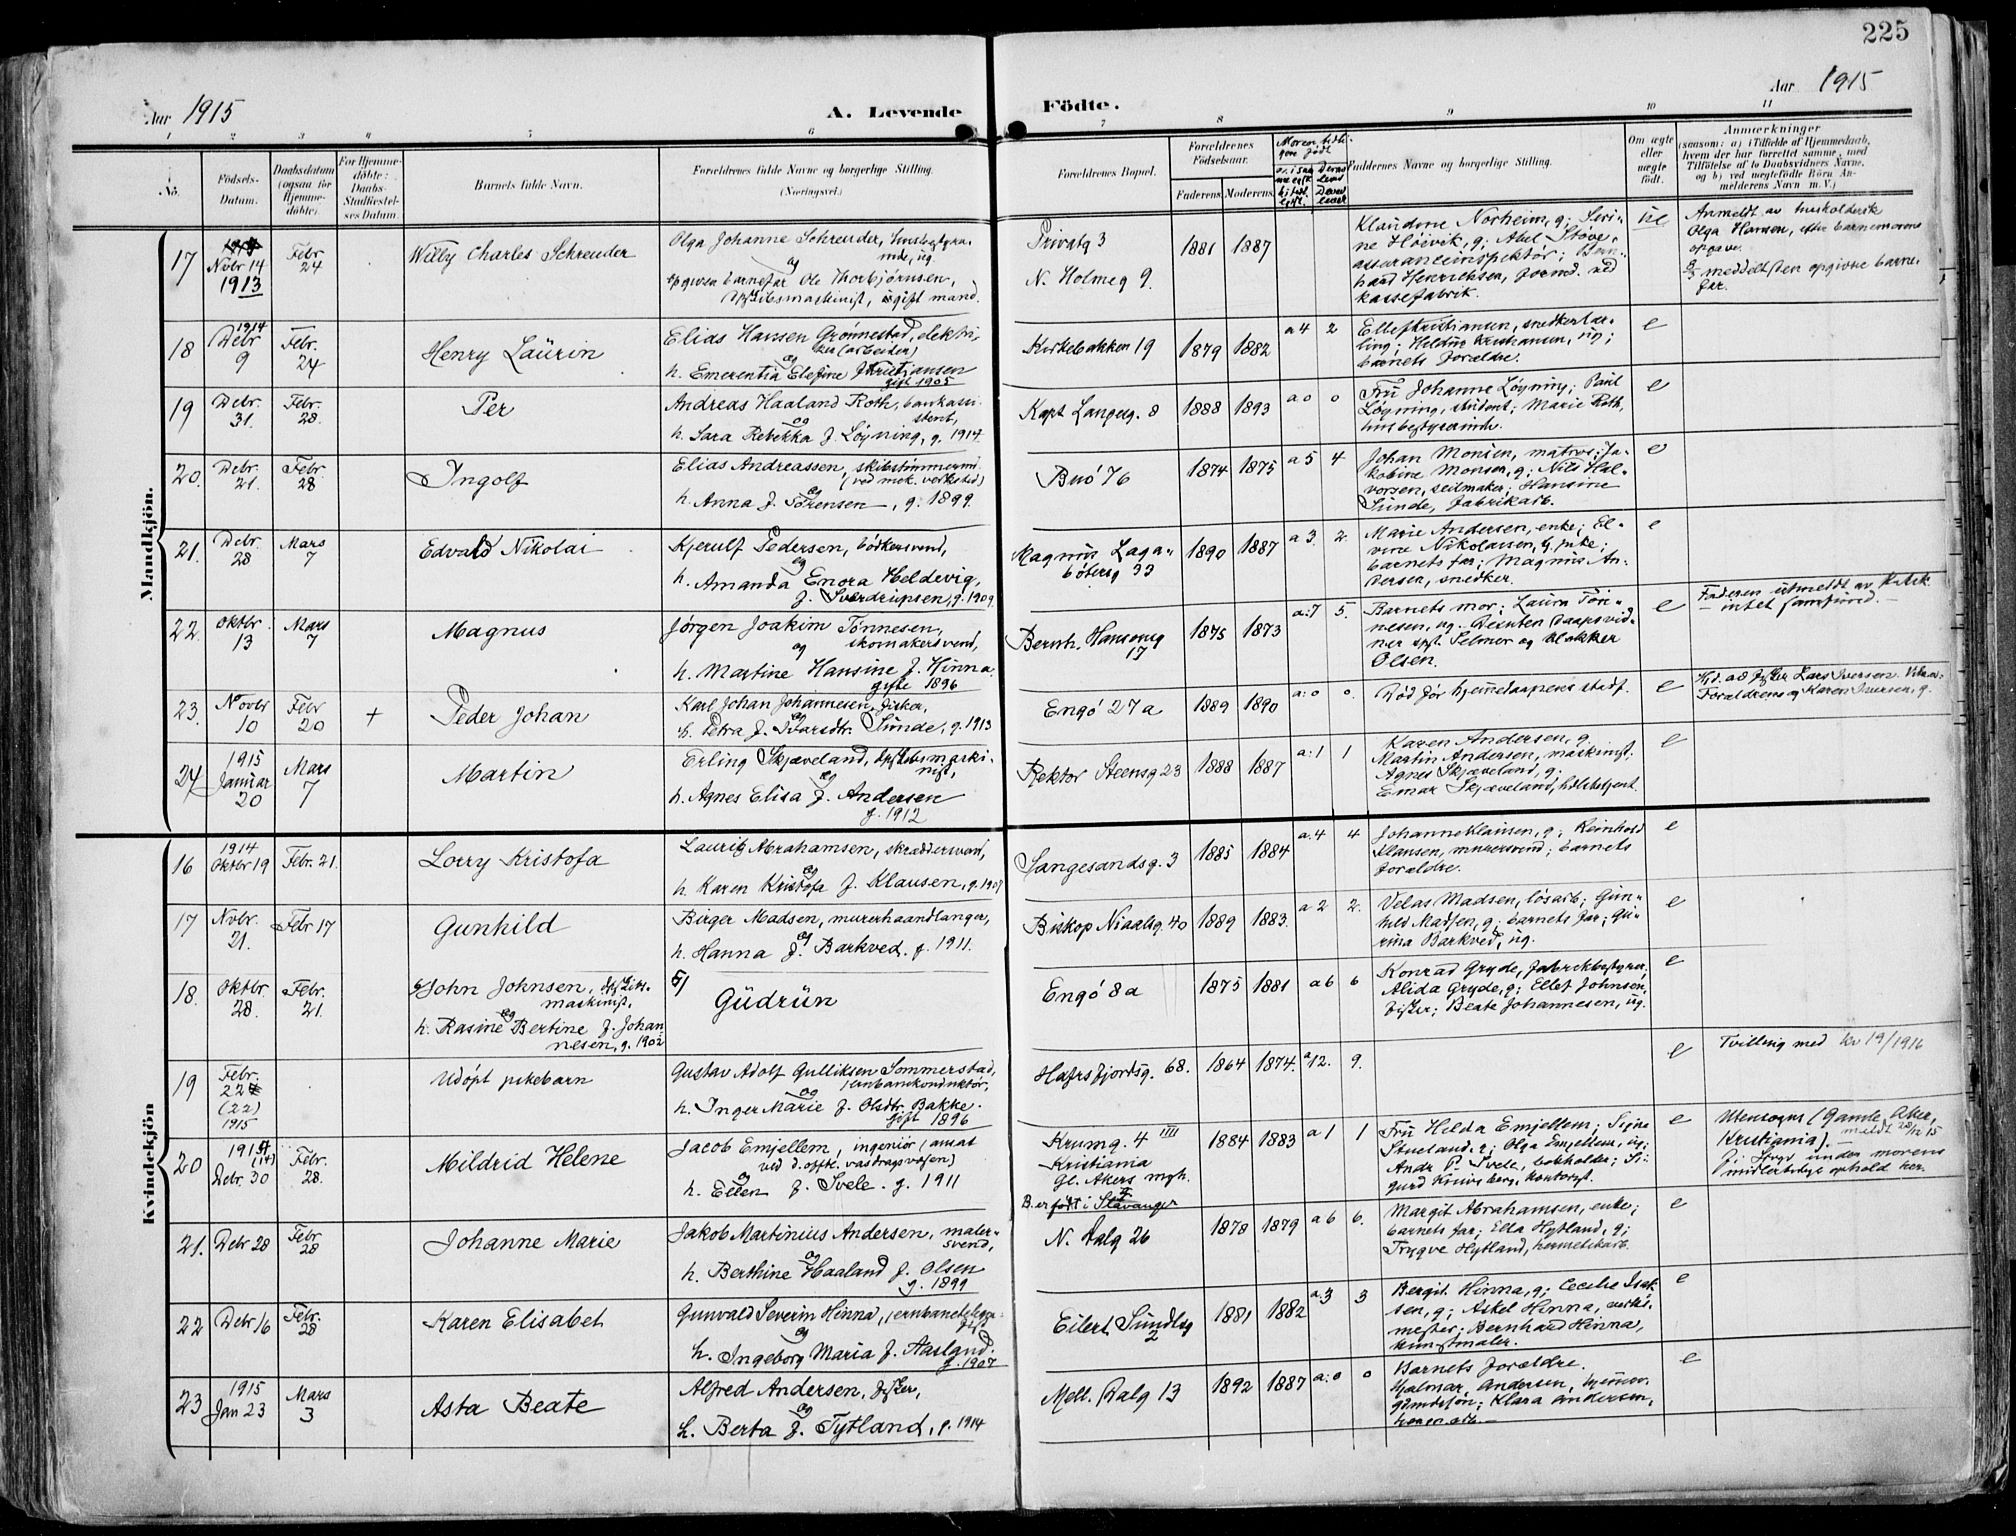 225
Aar 1915
A. Levende
Födte.
Aar 1915
1 2 3 4 5 6 7 8 9 10 11
No.
Födsels-Datum.
Daabsdatum (ogsaa for Hjemmedöbte).
For Hjemmedöbte: Daabs-Stadfæstelses Datum.
Barnets fulde Navn.
Forældrenes fulde Navne og borgerlige Stilling. (Næringsvei.)
Forældrenes Bopæl.
Forældrenes Födselsaar.
Faderens. Moderens.
Faddernes Navne og borgerlige Stilling.
Om ægte eller uægte födt.
Anmærkninger
(saasom: a) i Tilfælde af Hjemmedaab, hvem der har forrettet samme, med Tilföielse af to Daabsvidners Navne, og b) ved uægtefödte Börn Anmelderens Navn m. V.)
Mandkjön.
17
Novbr 14
1913
Febr 24
Willy Charles Schreuder
Olga Johanne Schreuder, husbestyrerinde, ug.
og
opgiven barnefar Ole Thorbjørnsen,
skibsmaskinist, gift mand.
Privatg 3
N. Holmeg 9.
1881 1887
Klaudine Norheim, g; Serine Høievik, g; Abel Støve, assuranceinspektør; Bernhard Henriksen, formd. ved kassefabrik.
ue
Anmeldt av husholderske
Olga Hansen, efter barnemorens
opgave.
meddelt den opgivne barnefar.
18
1914
Debr 9
Febr. 24
Henry Laurin
Elias Hansen Grønnestad, elektriker (arbeider)
og
h. Emerentia Elefine f. Kristiansen
gift 1905
Kirkebakken 19
1879 1882
a 4 2
Ellef Kristiansen, snedkerlærling; Helene Kristiansen, ug; barnets forældre.
e
19
Debr. 31.
Febr. 28.
Per
Andreas Haaland Roth, bankassistent,
og
h. Sara Rebekka f. Løyning, g. 1914.
Kapt Langesg. 8
1888 1893
a 0 0
Fru Johanne Løyning; Paul Løyning, student; Marie Roth, husbestyrerinde.
e
20.
Debr. 21.
Febr. 28
Ingolf
Elias Andreassen, skibstømmermd. (ved mek. verksted)
og
h. Anna f. Sørensen, g. 1899.
Buö 76
1874 1875
a 5 4
Johan Monsen, matros; Jakobine Monsen, g; Nils Halvorsen, seilmaker; Hansine Sunde, fabrikarb.
e
21.
Debr. 28
Mars 7
Edvald Nikolai
Kjerulf Pedersen, bødkersvend,
og
h. Amanda Enora Heldevig,
f. Sverdrupsen, g. 1909.
Magnus Lagabøtersg 33
1890 1887
a 3. 2.
Marie Andersen, enke; Elvine Nikolaisen, enke; barnets far; Magnus Andersen, snedker.
e
22.
Oktbr. 13
Mars 7
Magnus
Jørgen Joakim Tønnesen,
skomakersvend,
og
h. Martine Hansine f. Hinna.
gifte 1896
Bernh. Hansensg 17
1875 1873
a: 7 5.
Barnets mor; Laura Tønnesen, ug. Desuten daapsvidner spt. Selmer og klokker Olsen.
e
Faderen utmeldt av statsk.
— intet samfund. —
23.
Novbr 10
Febr 20
+
Peder Johan
Karl Johan Johannesen, fisker,
og
h. Petra f. Ivarsdtr. Sunde, g. 1913
Engö 27 a
1889 1890
a: 0 0.
Død før hjemmedaapens stadf.
e
Hd. ad fisker Lars Iversen. Vitner
Forældrene og Karen Iversen, g.
24
1915
Januar 20
Mars 7
Martin
Erling Skjæveland, skibsmaskinist,
og
h. Agnes Elisa f. Andersen
g. 1912
Rektor Steensg 23
1888 1887
a: 1 1
Karen Andersen, g.
Martin Andersen, maskinist;
Agnes Skjæveland, g;
Emar Skjæveland, hotelbetjent.
e
Kvindekjön
16
1914
Oktbr 19
Febr. 21.
Lorry Kristofa
Laurits Abrahamsen, skræddersvend,
og
h. Karen Kristofa f. Klausen, g. 1907
Sangesandsg. 3
1885 1884
a. 4 4
Johanne Klausen, g; Reinhold Klausen, murersvend; barnets forældre.
e
17
Novbr. 21.
Febr 17
Gunhild
Birger Madsen, murerhaandlanger,
og
h. Hanna f. Barkved. g. 1911.
Biskop Niaalsg. 40
1889 1883.
a 2 2.
Velas Madsen, løsarb; Gunhild Madsen, g; barnets far; Gurina Barkved, ug.
e
18.
Oktbr. 28.
Febr. 21.
John Johnsen, skibsmaskinist,
og
h. Rasine Bertine f. Johannesen, g. 1902
Gudrun
Engö 8 a
1875 1881
a 6 6
Konrad Gryde, fabrikbestyrer; Alida Gryde, g; Ellef Johnsen, fisker; Beate Johannesen, ug.
e
19
Febr. 22
(22)
1915
Udöpt pikebarn
Gustav Adolf Gulliksen Sommerstad,
jernbanekonduktør,
og
h. Inger Marie f. Olsdtr. Bakke.
gift 1896
Hafrsfjordsg. 68.
1864 1874.
a 12. 9.
e
Tvilling med kv 19/1916
20
1915
(14)
Debr. 30
Febr. 28.
Mildrid Helene
Jacob Emjellem, ingeniør (ansat
ved d. offtl. vasdragsvæsen)
og
h. Ellen f. Svele. g. 1911
Krumg. 4 IIII
Kristiania
Gl. Akers mgh.
B. er født i Stavanger
1884 1883
a 1 1
Fru Hilda Emjellem; Signe Stueland, g; Olga Emjellem, ug; Andr. B. Svele, bokholder; Sigurd Knivsberg, kontorist.
e
Utensogns (Gamle Aker,
Kristiania). meldt
under morens
midlertidige ophold her.
21.
Debr 28
Febr. 28
Johanne Marie
Jakob Martinius Andersen, malersvend,
og
h. Berthine Haaland f. Olsen
g. 1899
N. Dalg 26
1878 1879
a 6 6.
Margit Abrahamsen, enke; barnets far; Ella Hytland, g; Trygve Hytland, hermetikarb.
e
22
Debr 16
Febr. 28
Karen Elisabet
Gunvald Severin Hinna, jernbanetelegrafist
og
h. Ingeborg Maria f. Aasland.
g. 1907
Eilert Sundtsg 2
1881 1882
a. 3 3
Bergit Hinna, g; Cecilie Isaksen, g; Askel Hinna, verksmester; Bernhard Hinna, kunstmaler.
e
23
1915
Jan 23
Mars 3
Asta Beate
Alfred Andersen, fisker,
og
h. Berta f. Tytland, g. 1914
Mell. Dalg 13
1892 1887
a: 0 0
Barnets forældre.
Hjalmar Andersen, Klara Andersen,
e